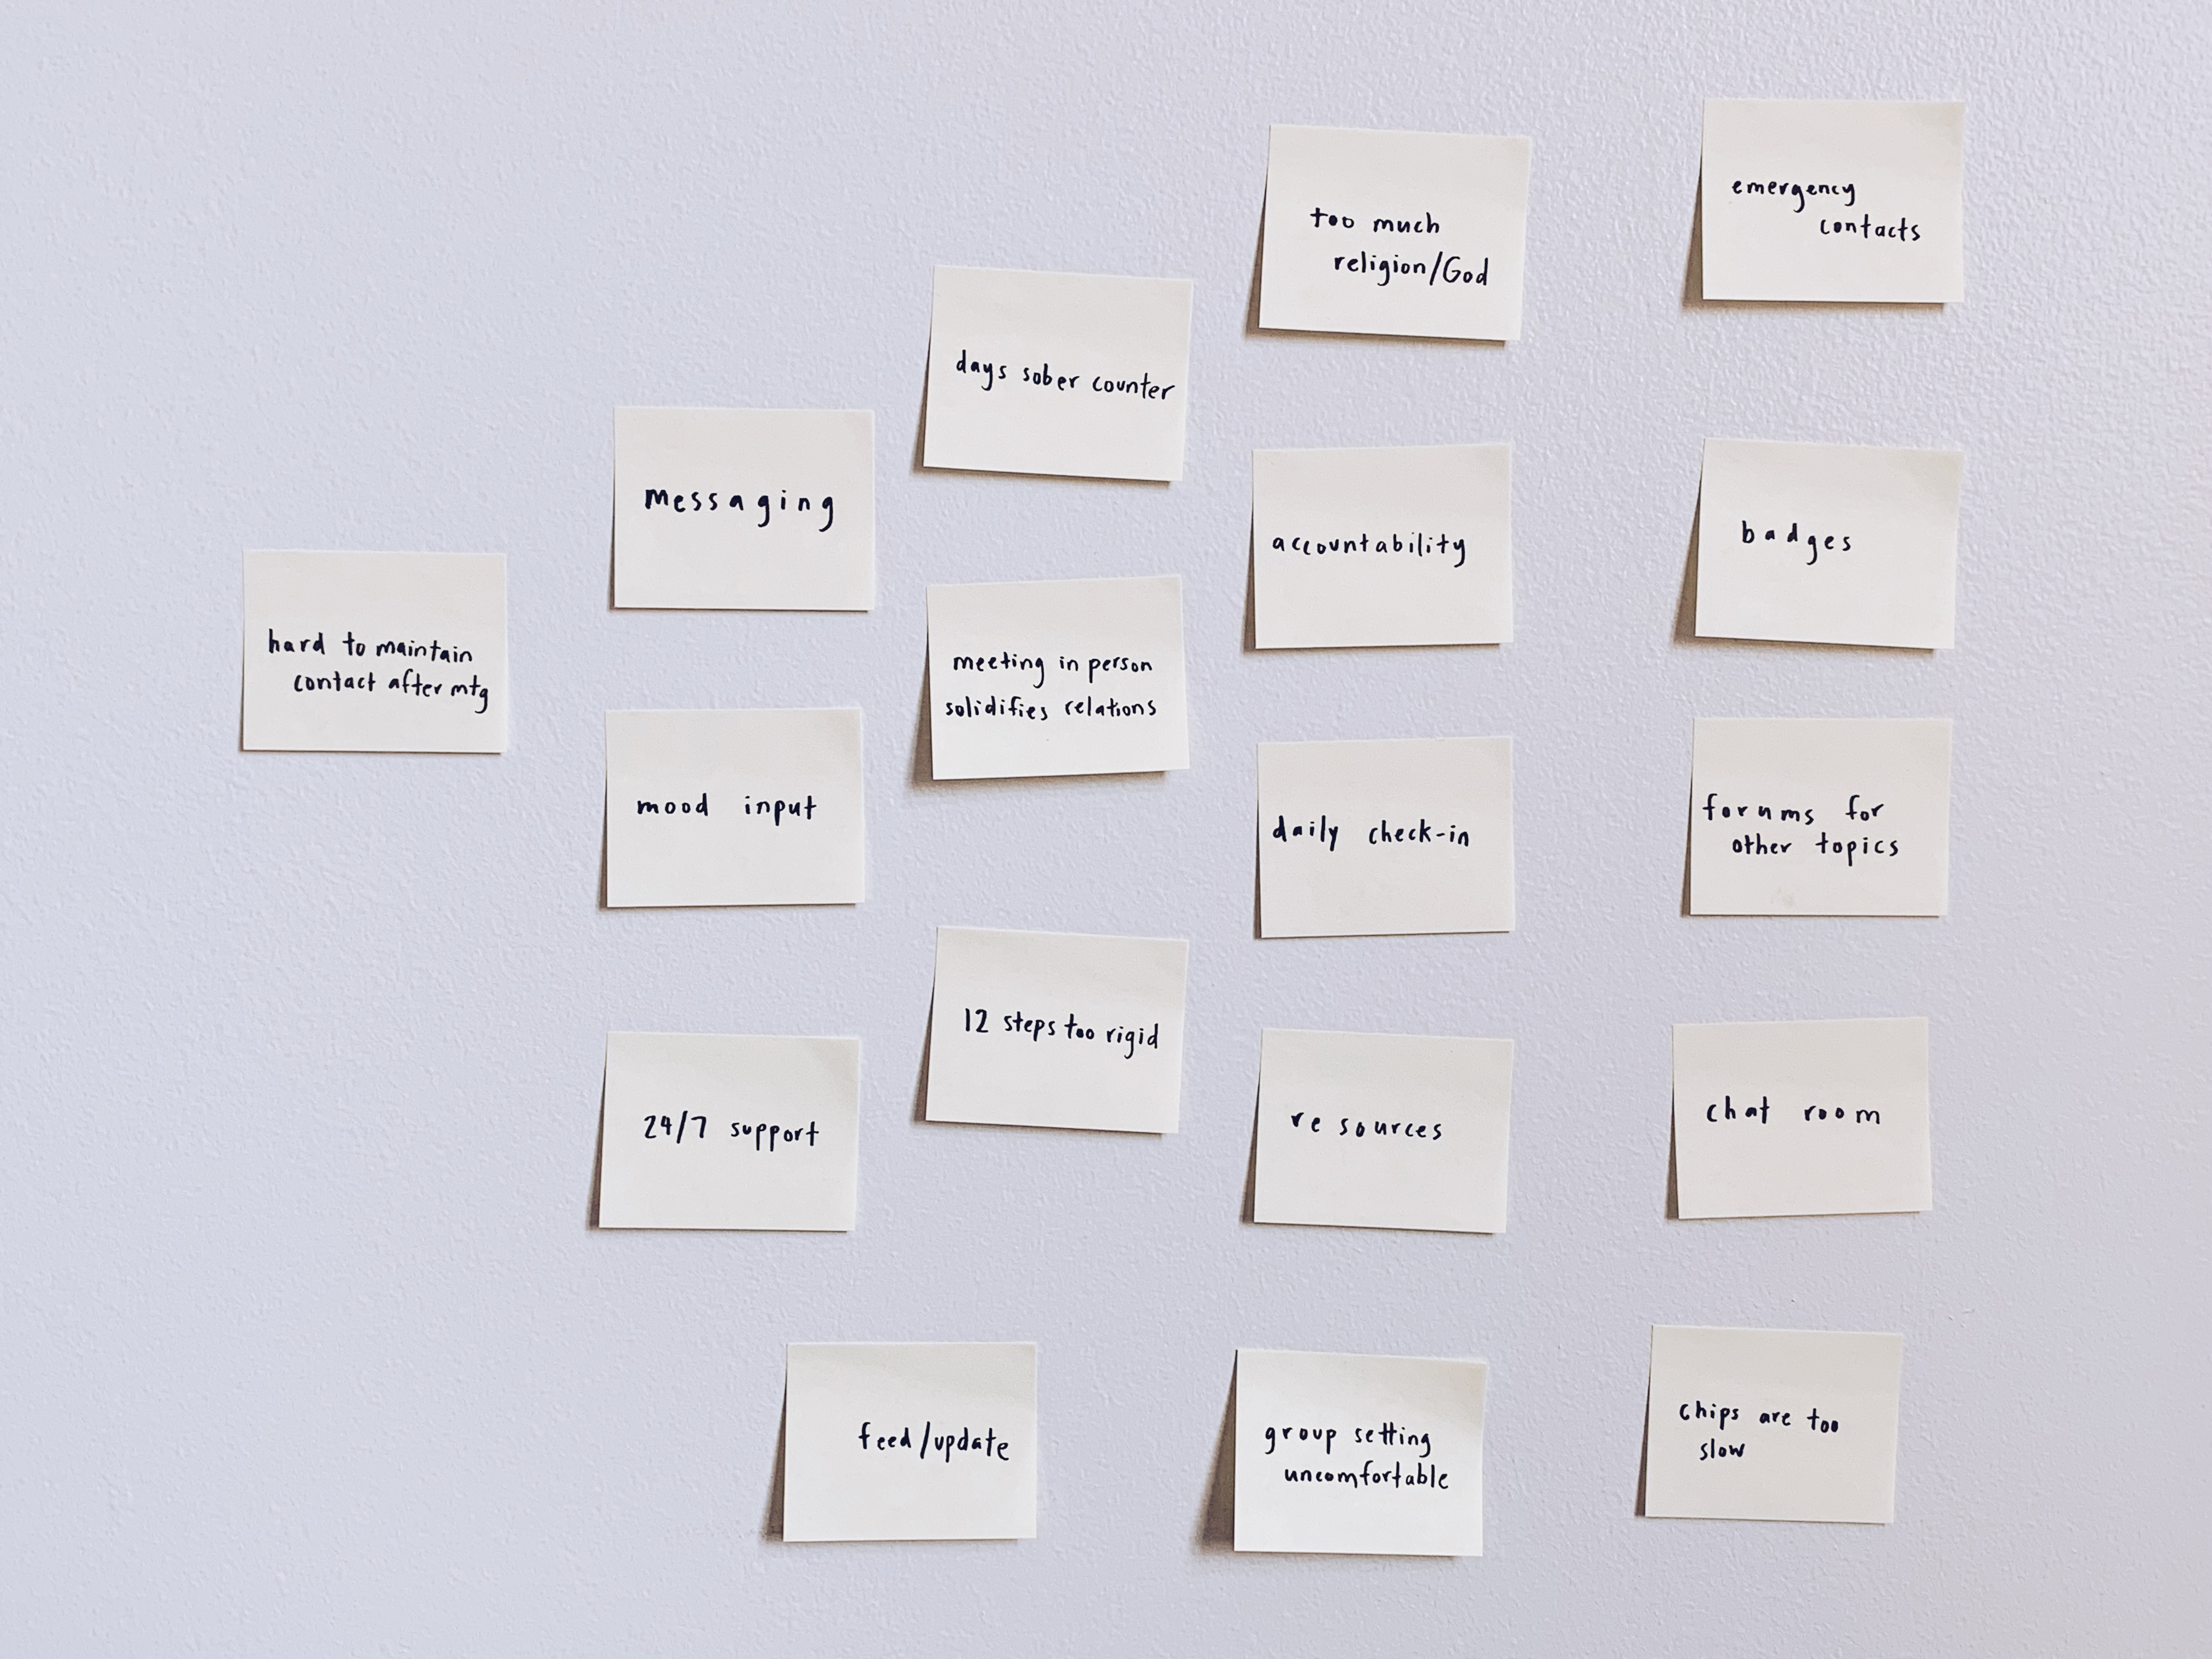 hard to maintain
contact after mtg
messaging
mood input
24/7 support
feed/update
days sober counter
meeting in person
solidifies relations
12 steps too rigid
too much
religion/God
accountability
daily check-in
resources
group setting
uncomfortable
emergency
contacts
badges
forums for
other topics
chat room
chips are too
slow